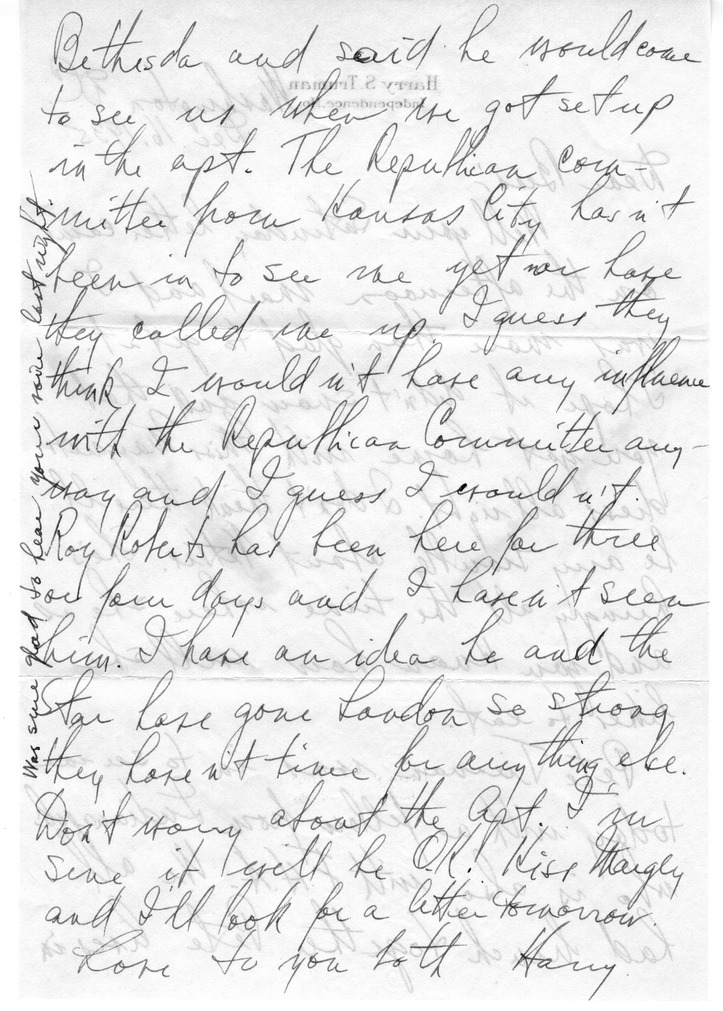 Bethesda and said he would come
to see us when we got set up
in the apt. The Republican com-
mittee from Kansas City hasn't
been in to see me yet nor have
they called me up. I guess they
think I wouldn't have any influence
with the Republican Committee any-
way and I guess I wouldn't.
Roy Roberts has been here for three
or four days and I haven't seen
him. I have an idea he and the
Star have gone Landon so strong
they haven't time for anything else.
Don't worry about the apt. I'm
sure it will be O.K! Kiss Margey
and I'll look for a letter tomorrow.
Love to you both Harry.
Was sure glad to hear your voice last night.
Harry S. Truman
Independence, Mo.